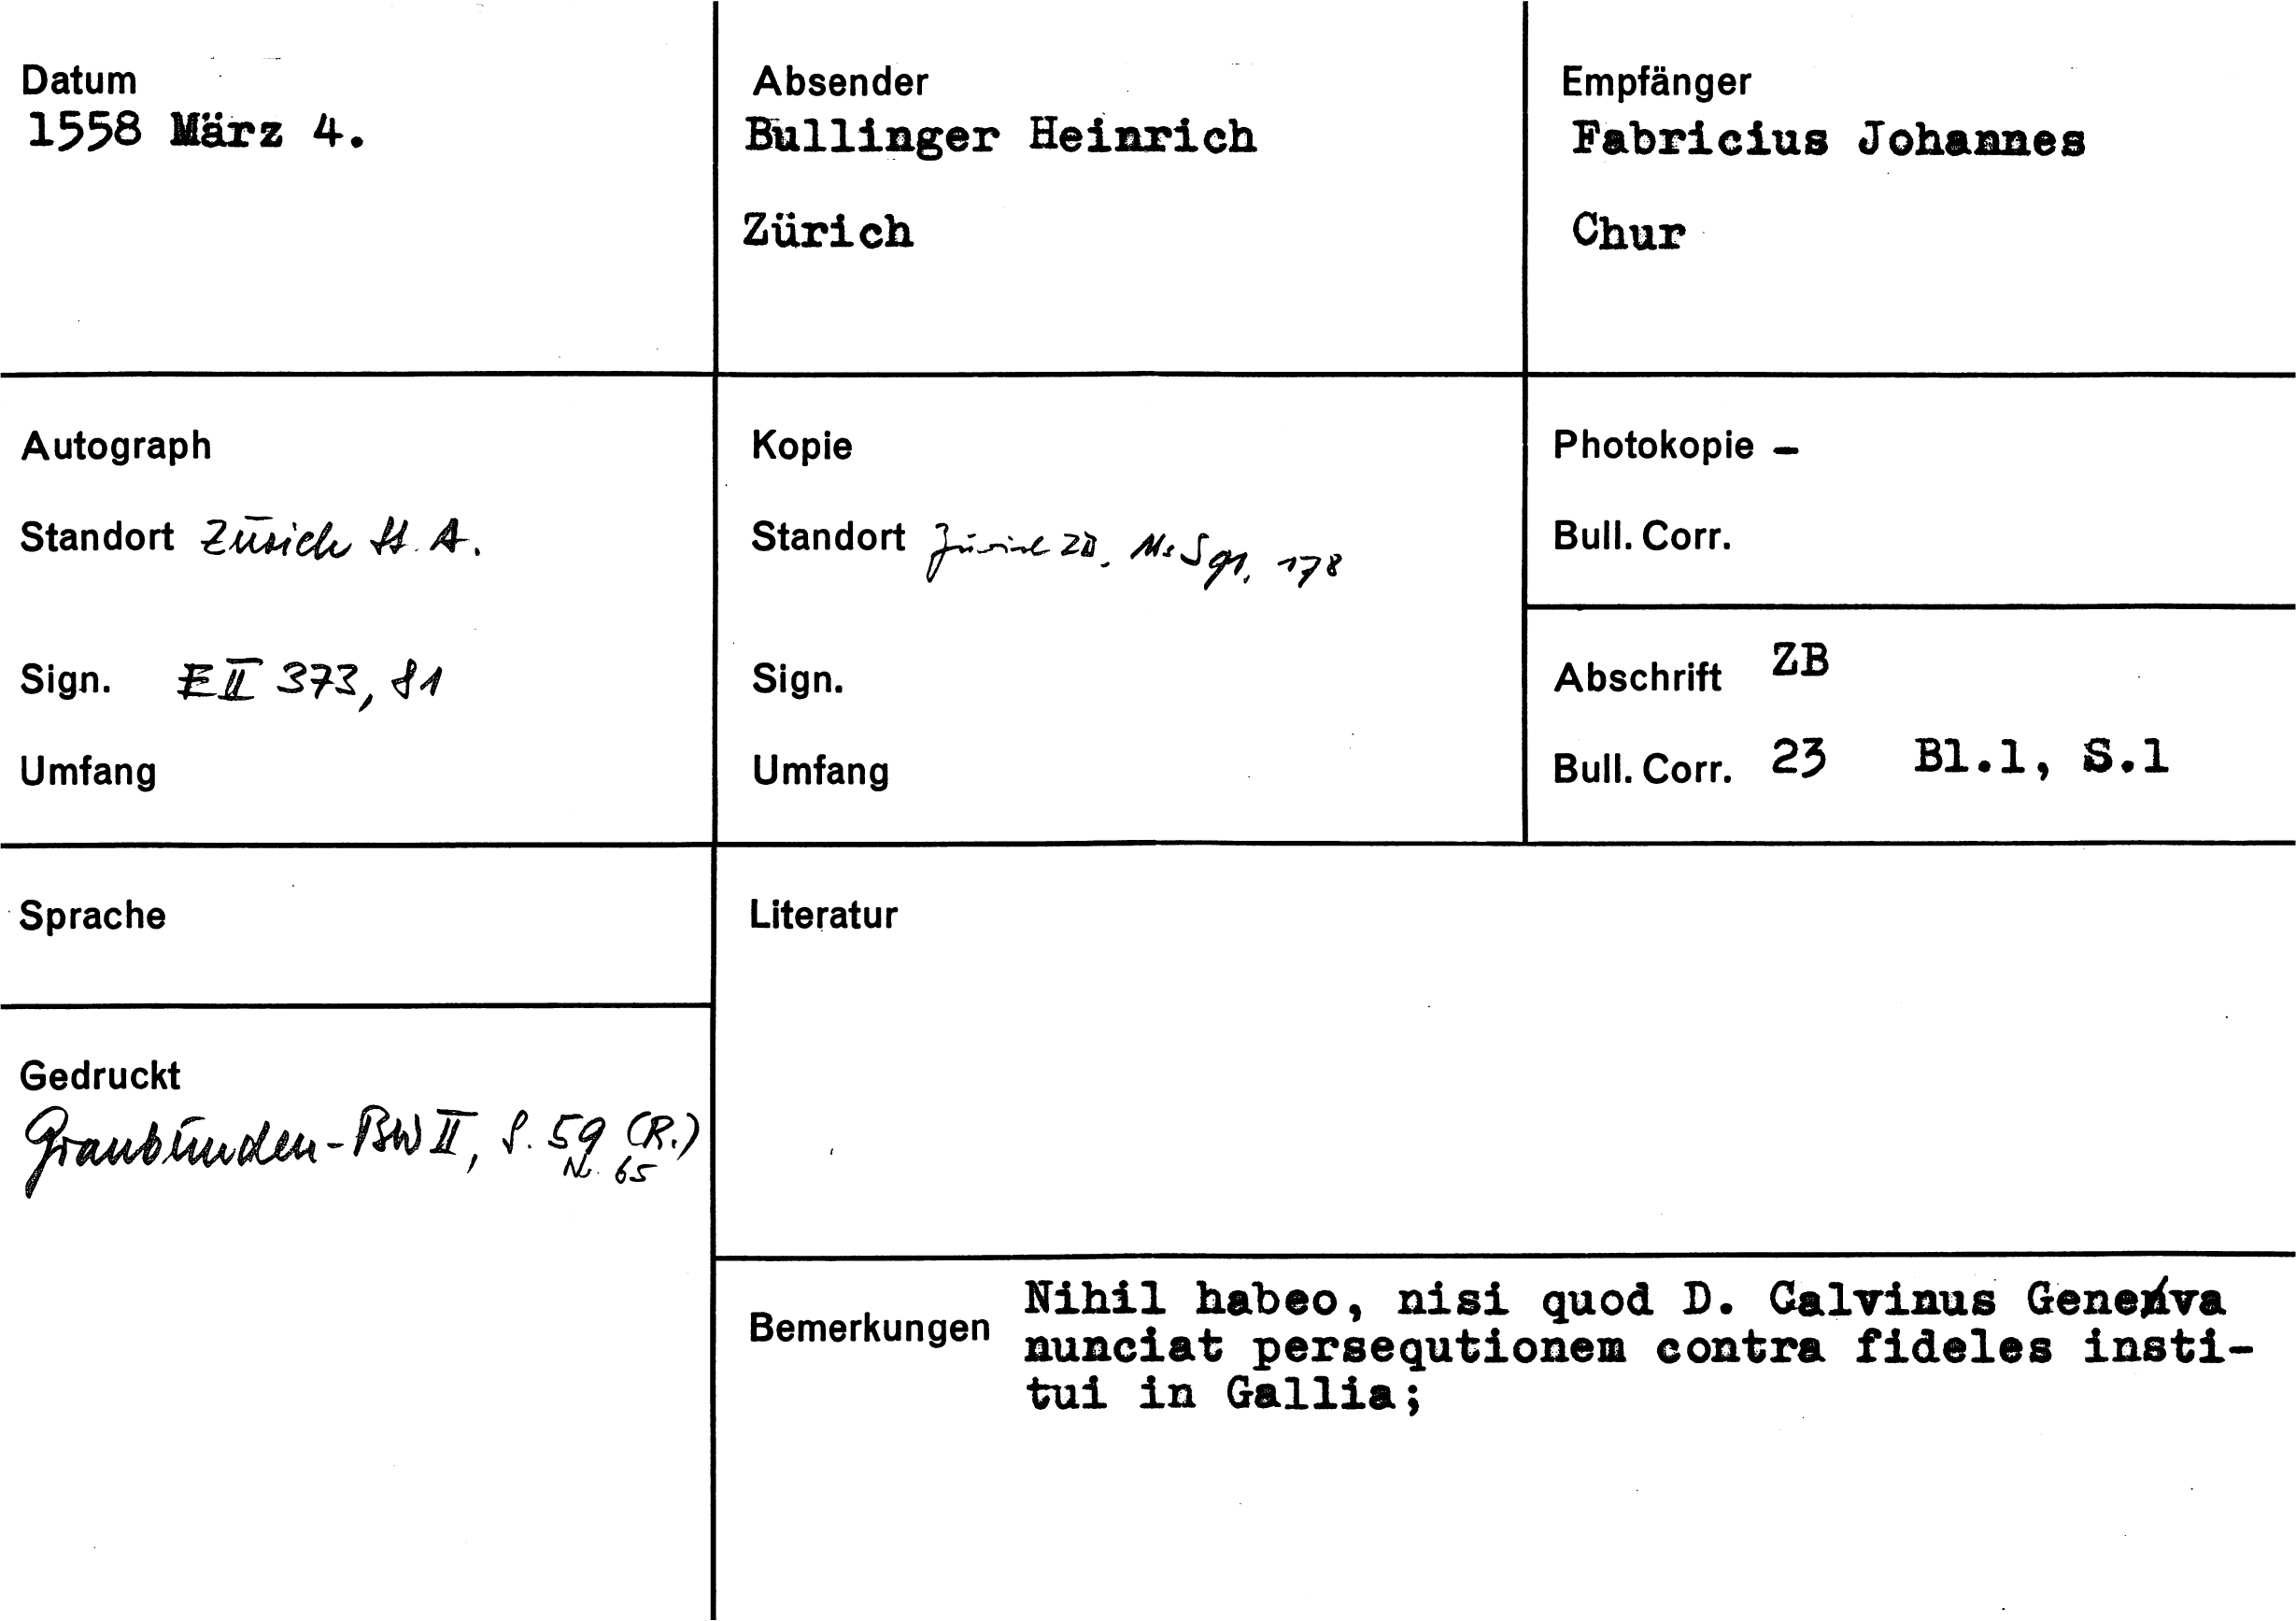 Datum
1558 März 4.
Absender
Bullinger Heinrich
Zürich
Empfänger
Fabricius Johannes
Chur
Autograph
Standort Zürich St. A.
Sign. E II 373, 81
Umfang
Kopie
Standort Zürich ZB, Ms S 178
Sign.
Umfang
Photokopie -
Bull. Corr.
Abschrift ZB
Bull. Corr. 23 Bl.1, S.1
Sprache
Literatur
Gedruckt
Graubünden-BW II, S. 59 (R.)
Nr. 65
Bemerkungen
Nihil habeo, nisi quod D. Calvinus Geneva
nunciat persequtionem contra fideles insti-
tui in Gallia;